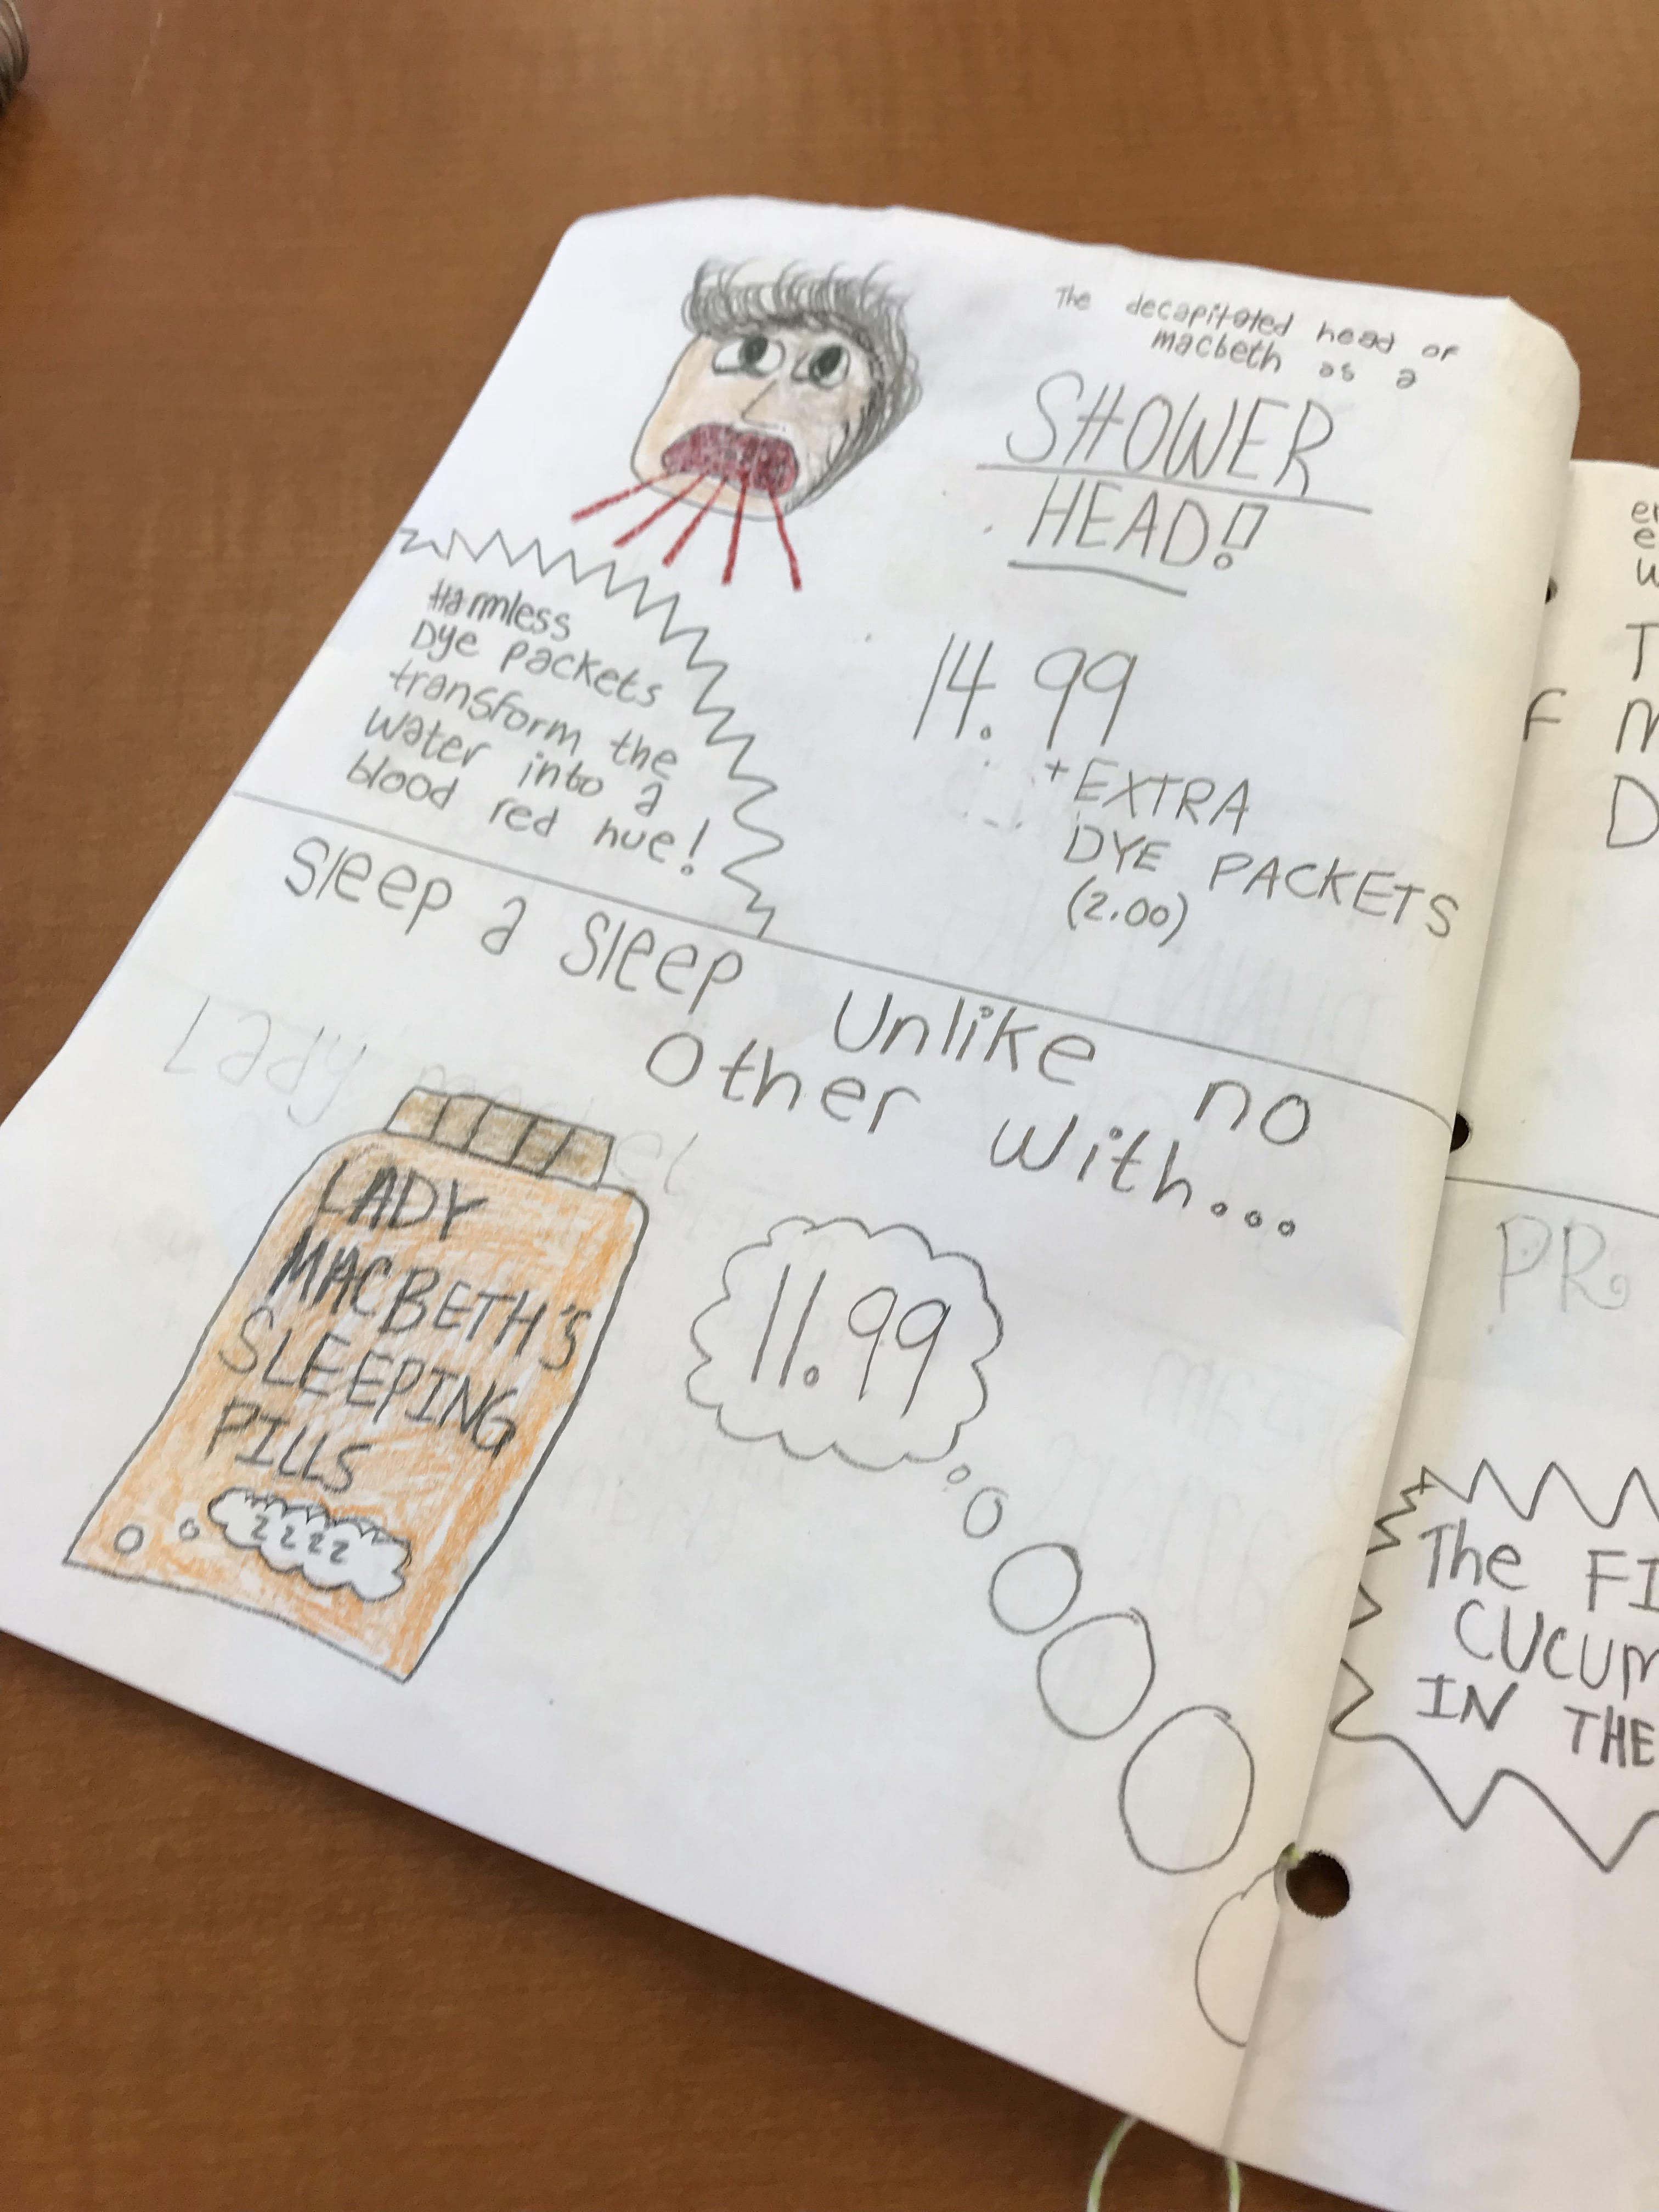 The decapitated head of
macbeth as a
SHOWER
HEAD!
Harmless
Dye packets
transform the
water into a
blood red hue!
14.99
+EXTRA
DYE PACKETS
(2.00)
Sleep a sleep unlike no
other with...
Lady
LADY
MACBETH'S
SLEEPING
PILLS
zzzz
11.99
F M
D
PR
The FI
CUCUM
IN THE